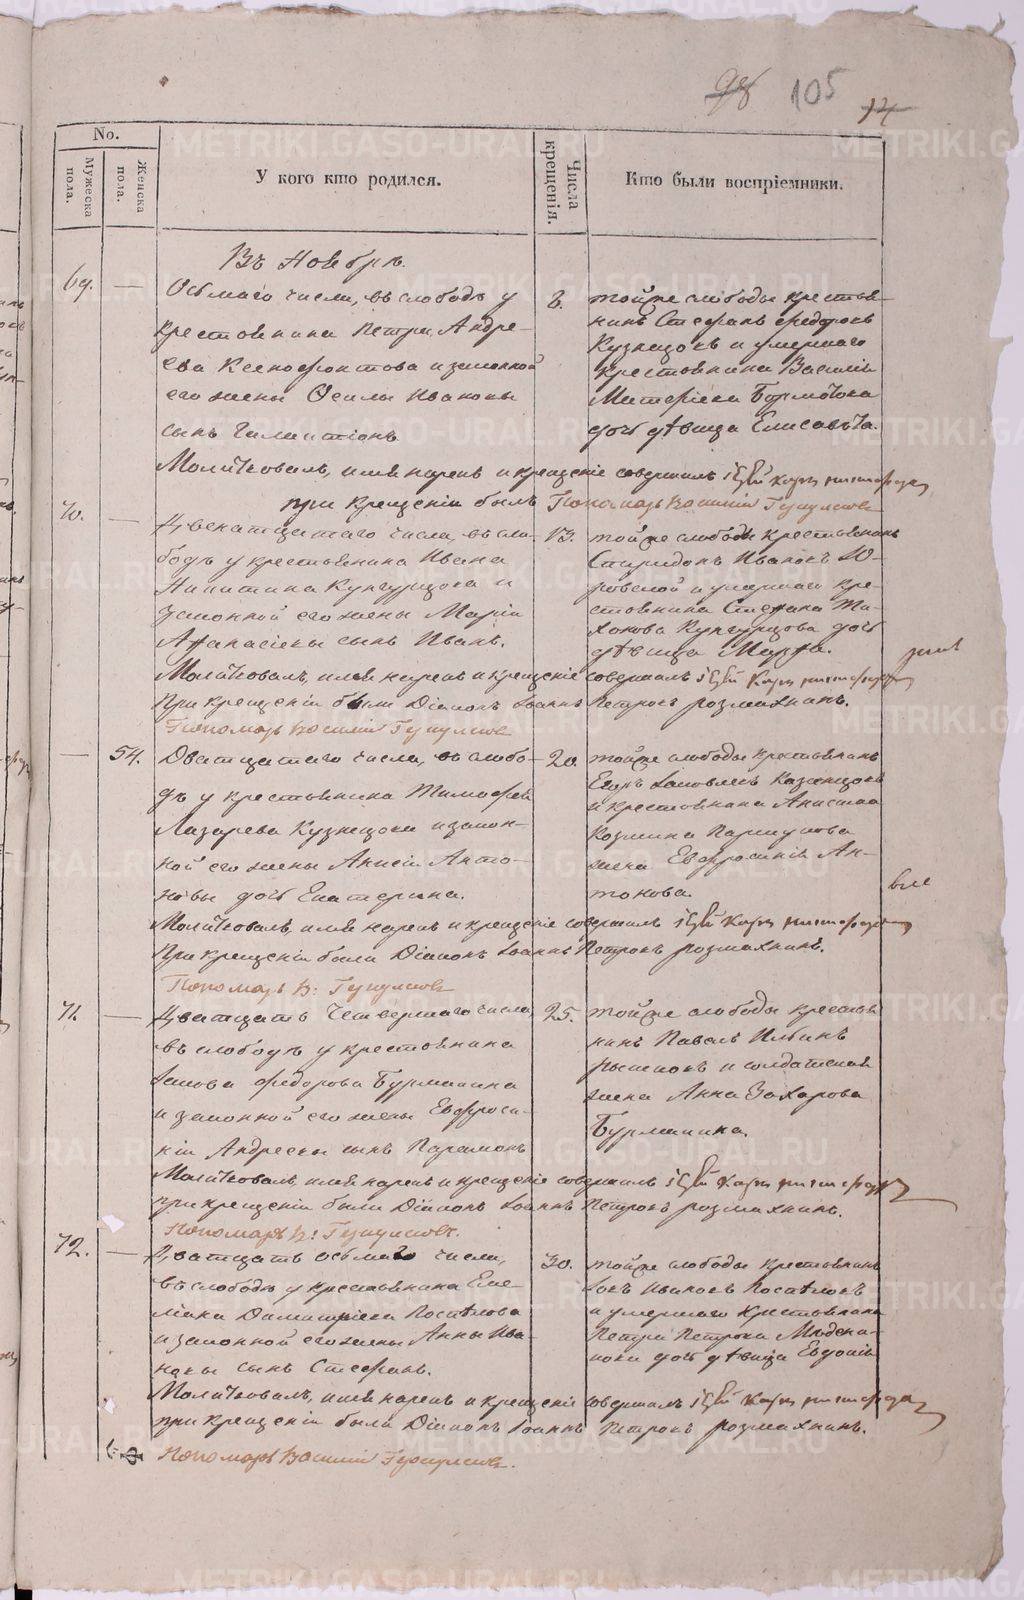 98 105 14
No.
Мужеска пола.
Женска пола.
У кого кто родился.
Числа крещенія.
Кто были воспріемники.
Въ Ноебрѣ.
69. — Осьмаго числа, въ слободѣ у
крестьянина Петра Андре-
ева Ксенофонтова и законной
его жены Иванови
сынъ Галактіонъ
8. тойже слободы крестья-
нинъ Стефанъ Федоровъ
Кузнецовъ и умершаго
крестьянина Василія
дочь дѣвица Елисавѣта.
Молитвовалъ, имя нарекъ и крещеніе совершилъ
при крещеніи былъ Пономарь Василій
70. — Двенатцатаго числа, въ сло-
бодѣ у крестьянина Ивана
Никитина Кунгурцова и
законной его жены Маріи
Афанасіевы сынъ Иванъ.
13. тойже слободы крестьянинъ
Спиридонъ Ивановъ Ю-
ровской и умершаго кре-
стьянина Стефана Ти-
хонова Кунгурцова дочь
дѣвица Марфа.
Молитвовалъ, имя нарекъ и крещеніе совершилъ
При крещеніи были Діаконъ Іоаннъ Петровъ розмахнинъ.
Пономарь Василій
— 54. Дватцатаго числа, въ слобо-
дѣ у крестьянина Тимофея
Лазарева Кузнецова и закон-
ной его жены Анисіи Анто-
новы дочь Екатерина.
20. тойже слободы крестьянинъ
Егоръ Іаковлевъ Казанцовъ
и крестьянина
Козмина
жена Евфросинія Ан-
тонова.
Молитвовалъ, имя нарекъ и крещеніе совершилъ
При крещеніи были Діаконъ Іоаннъ Петровъ розмахнинъ.
Пономарь В:
71. — Дватцать Четвертаго числа,
въ слободѣ у крестьянина
Іакова Федорова Бурмакина
и законной его жены Евфроси-
ніи Андреевы сынъ Парамонъ
25. тойже слободы крестья-
нинъ Павелъ Ильинъ
и солдатская
жена Анна Захарова
Бурмакина.
Молитвовалъ имя нарекъ и крещеніе совершилъ
при крещеніи были Діаконъ Іоаннъ Петровъ розмахнинъ.
Пономарь В:
72. — Дватцать осьмаго числа,
въ слободѣ у крестьянина Еме-
ліана Поспѣлова
и законной его жены Анны Ива-
новы сынъ Стефанъ.
30. тойже слободы крестьянинъ
Ивановъ Поспѣловъ
и умершаго крестьянина
Петра Петрова
дочь дѣвица Евдокія
Молитвовалъ, имя нарекъ и крещеніе совершилъ
при крещеніи были Діаконъ Іоаннъ Петровъ розмахнинъ.
Пономарь Василій
METRIKI.GASO-URAL.RU